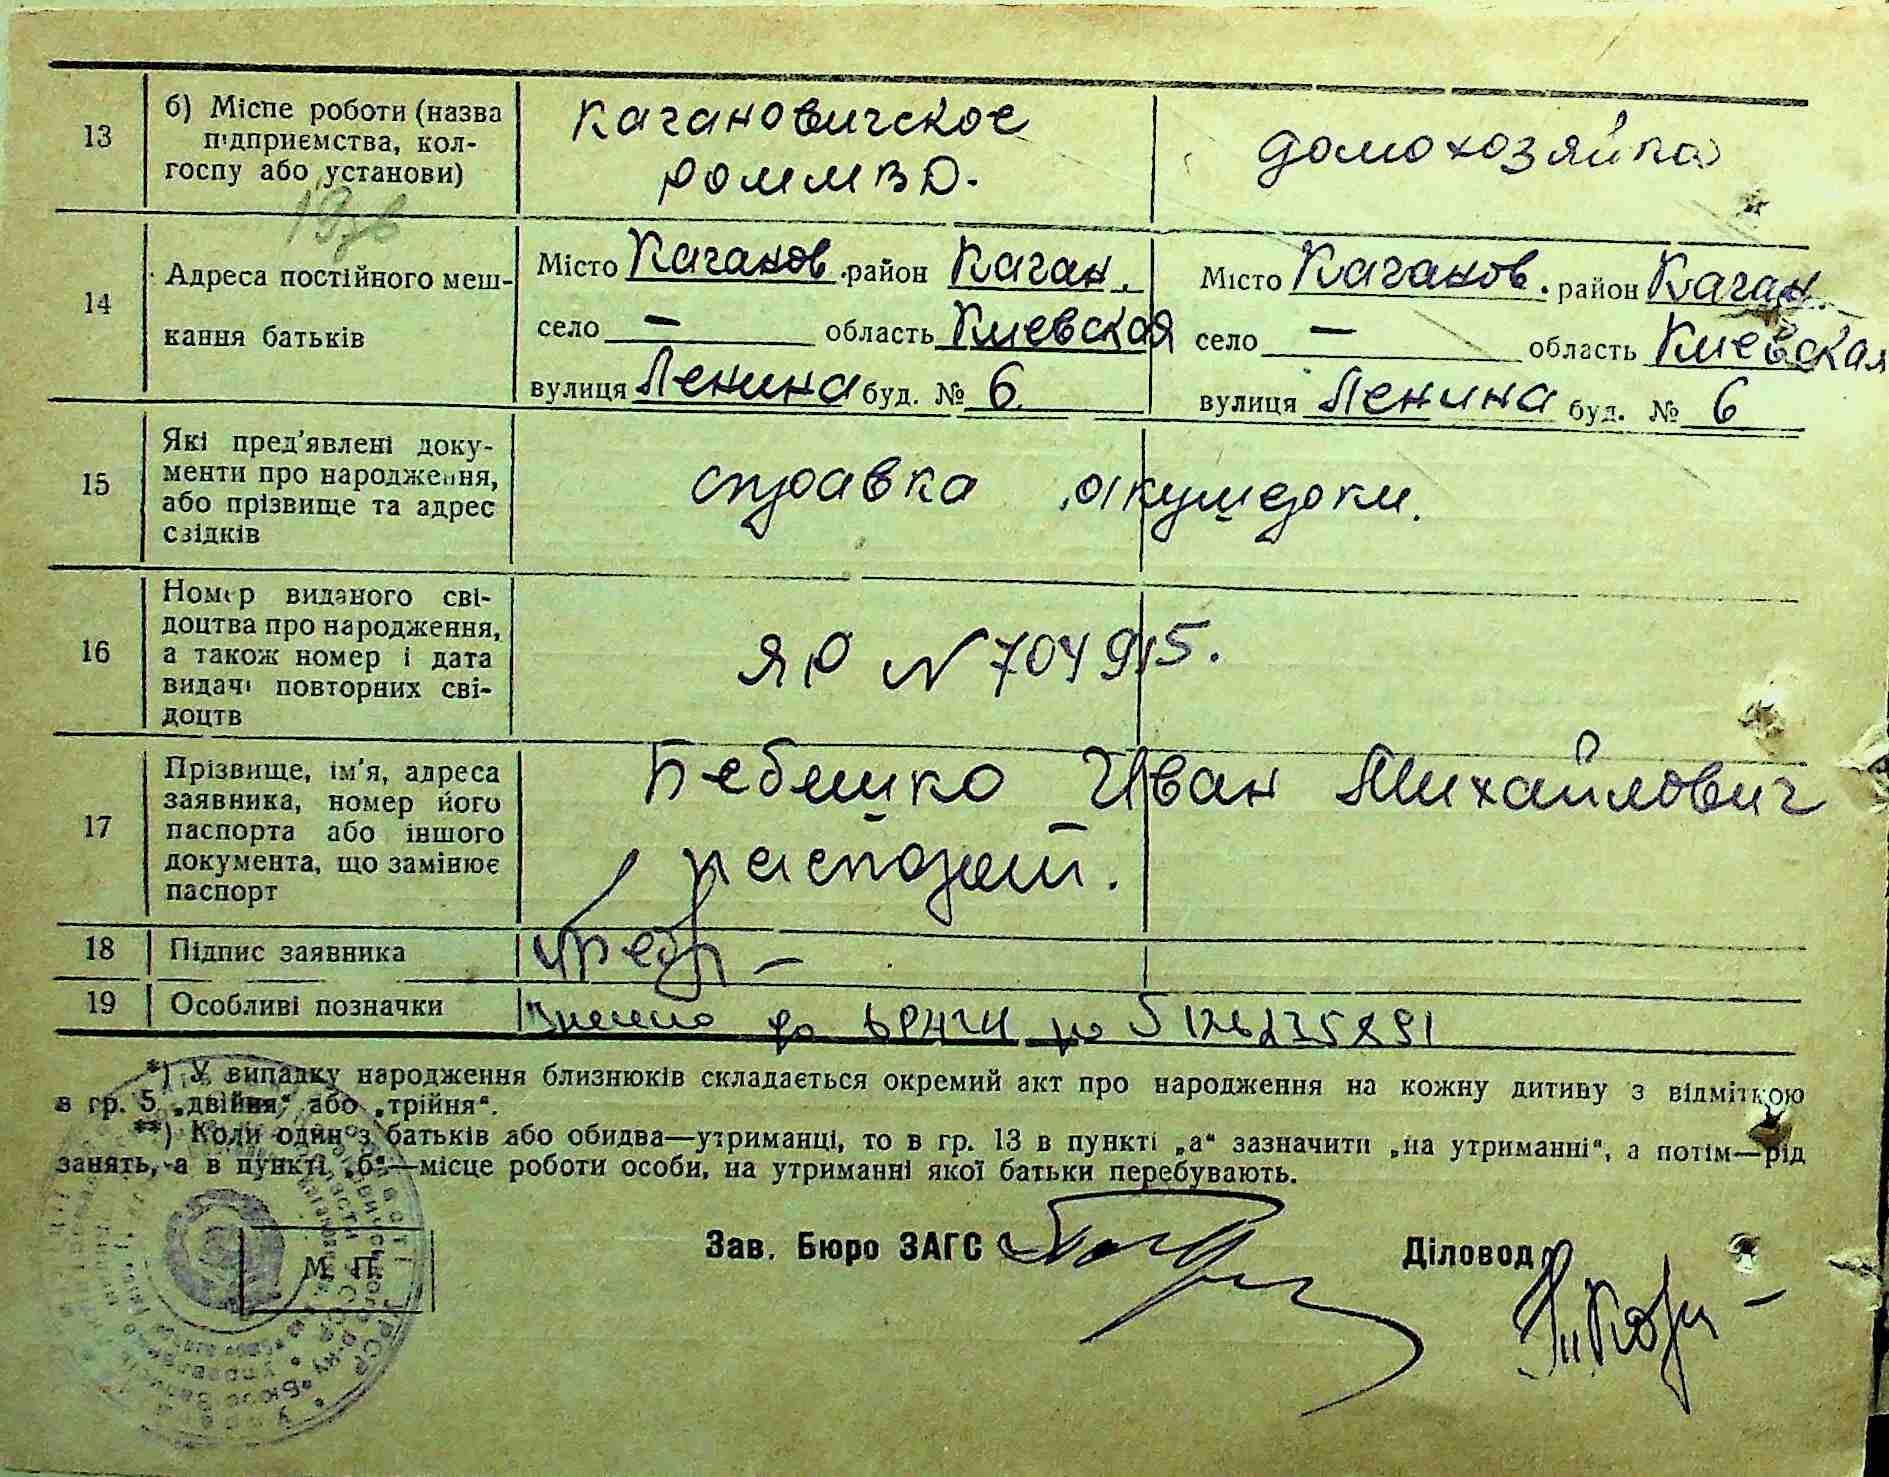 13
б) Місце роботи (назва
підприємства, кол-
госпу або установи)
Кагановичское
РОММВД.
домохозяйка
14
Адреса постійного меш-
кання батьків
Місто Каганов. район Каган.
село — область Киевская
вулиця Ленина буд. № 6
Місто Каганов. район Каган.
село — область Киевская
вулиця Ленина буд. № 6
15
Які пред'явлені доку-
менти про народження,
або прізвище та адрес
свідків
справка акушерки.
16
Номер виданого сві-
доцтва про народження,
а також номер і дата
видачі повторних сві-
доцтв
ЯЮ N 704915.
17
Прізвище, ім'я, адреса
заявника, номер його
паспорта або іншого
документа, що замінює
паспорт
Бебешко Иван Михайлович
18
Підпис заявника
19
Особливі позначки
Внесено до ДРАЦСГ
*) У випадку народження близнюків складається окремий акт про народження на кожну дитину з відміткою
в гр. 5 „двійня“ або „трійня“.
**) Коли один з батьків або обидва—утриманці, то в гр. 13 в пункті „а“ зазначити „на утриманні“, а потім—рід
занять, а в пункті „б“—місце роботи особи, на утриманні якої батьки перебувають.
М. П.
Зав. Бюро ЗАГС
Діловод